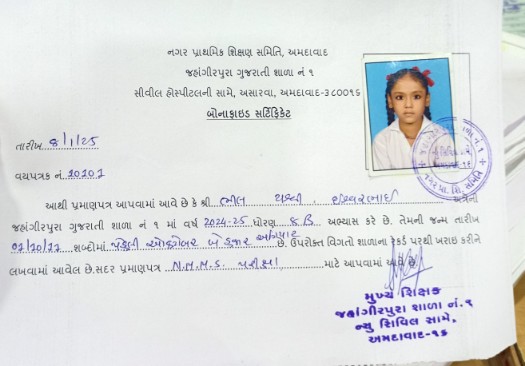 નગર પ્રાથમિક શિક્ષણ સમિતિ, અમદાવાદ
જહાંગીરપુરા ગુજરાતી શાળા નં ૧
સીવીલ હોસ્પીટલની સામે, અસારવા, અમદાવાદ-૩૮૦૦૧૬
બોનાફાઇડ સર્ટિફિકેટ
તારીખ 8/1/25
વયપત્રક નં.
આથી પ્રમાણપત્ર આપવામાં આવે છે કે શ્રી ભીલ ઇશ્વરભાઇ અત્રેની
જહાંગીરપુરા ગુજરાતી શાળા નં ૧ માં વર્ષ 2024-25 ધોરણ 8B અભ્યાસ કરે છે. તેમની જન્મ તારીખ
શબ્દોમાં પહેલી ઓક્ટોબર બે હજાર અગિયાર છે. ઉપરોક્ત વિગતો શાળાના રેકર્ડ પરથી ખરાઇ કરીને
લખવામાં આવેલ છે.સદર પ્રમાણપત્ર N.M.M.S. પરીક્ષા માટે આપવામાં આવે છે.
મુખ્ય શિક્ષક
જહાંગીરપુરા શાળા નં.૧
ન્યુ સિવિલ સામે,
અમદાવાદ-૧૬